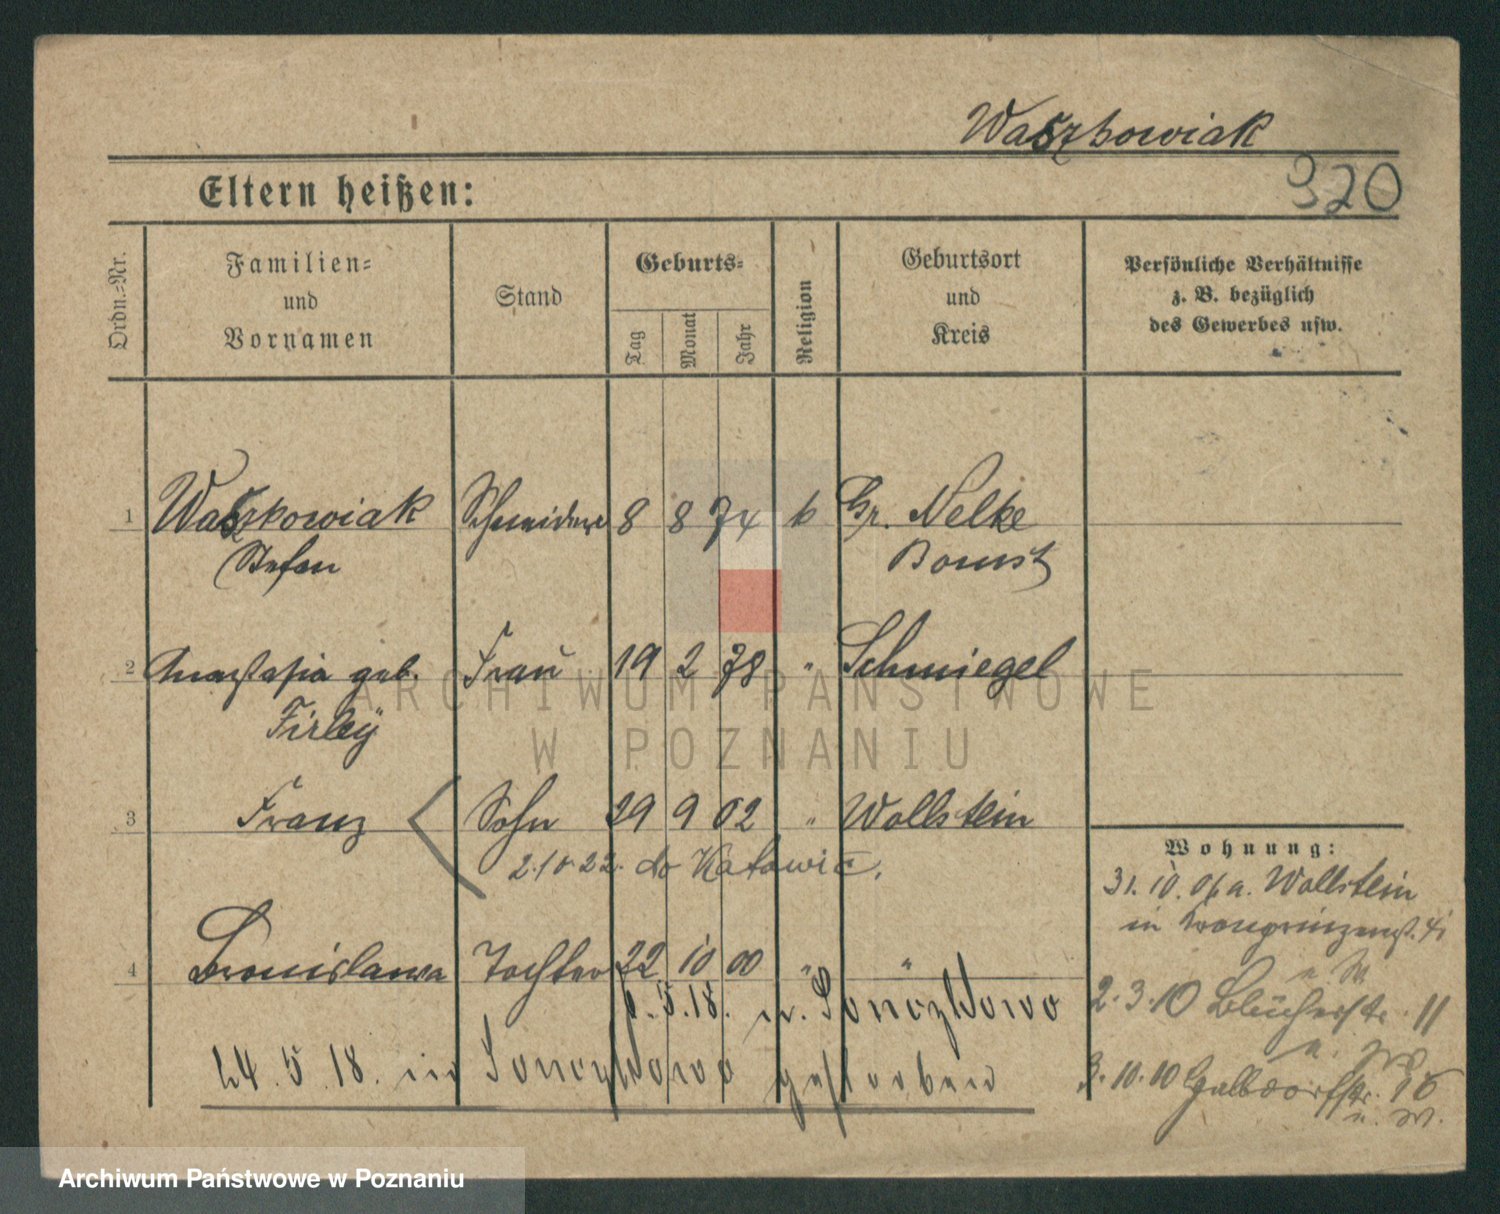 Waszkowiak
320
Eltern heißen:
Ordn.-Nr.
Familien- und Vornamen
Stand
Geburts-
Tag
Monat
Jahr
Religion
Geburtsort und Kreis
Persönliche Verhältnisse
z. B. bezüglich
des Gewerbes usw.
1 Waszkowiak Schneider 8 8 74 k Gr. Nelke
Stefan Bomst
2 Anastasia geb. Frau 19 2 78 " Schmiegel
Firley
3 Franz Sohn 29 9 02 " Wollstein
2.10.22. do Katowic.
Wohnung:
31. 10. 06 a. Wollstein
in Kronprinzenst.
4 Bronislawa Tochter 22 10 00 " "
5.18. n.
2.3.10 Blücherstr. 11
24.5.18. in gestorben
3.10.10
ARCHIWUM PAŃSTWOWE
W POZNANIU
Archiwum Państwowe w Poznaniu